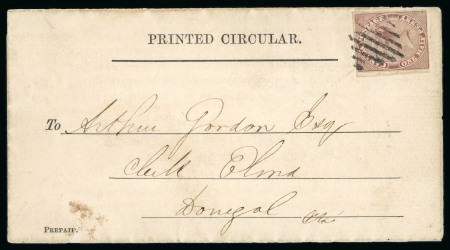 PRINTED CIRCULAR.
To Arthur Gordon Esq
Clerk Elma
Donegal
PREPAID.